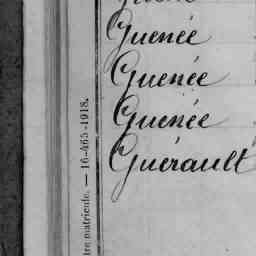 Guenée
Guenée
Guenée
Guérault
tre matricule. — 16-465-1918.